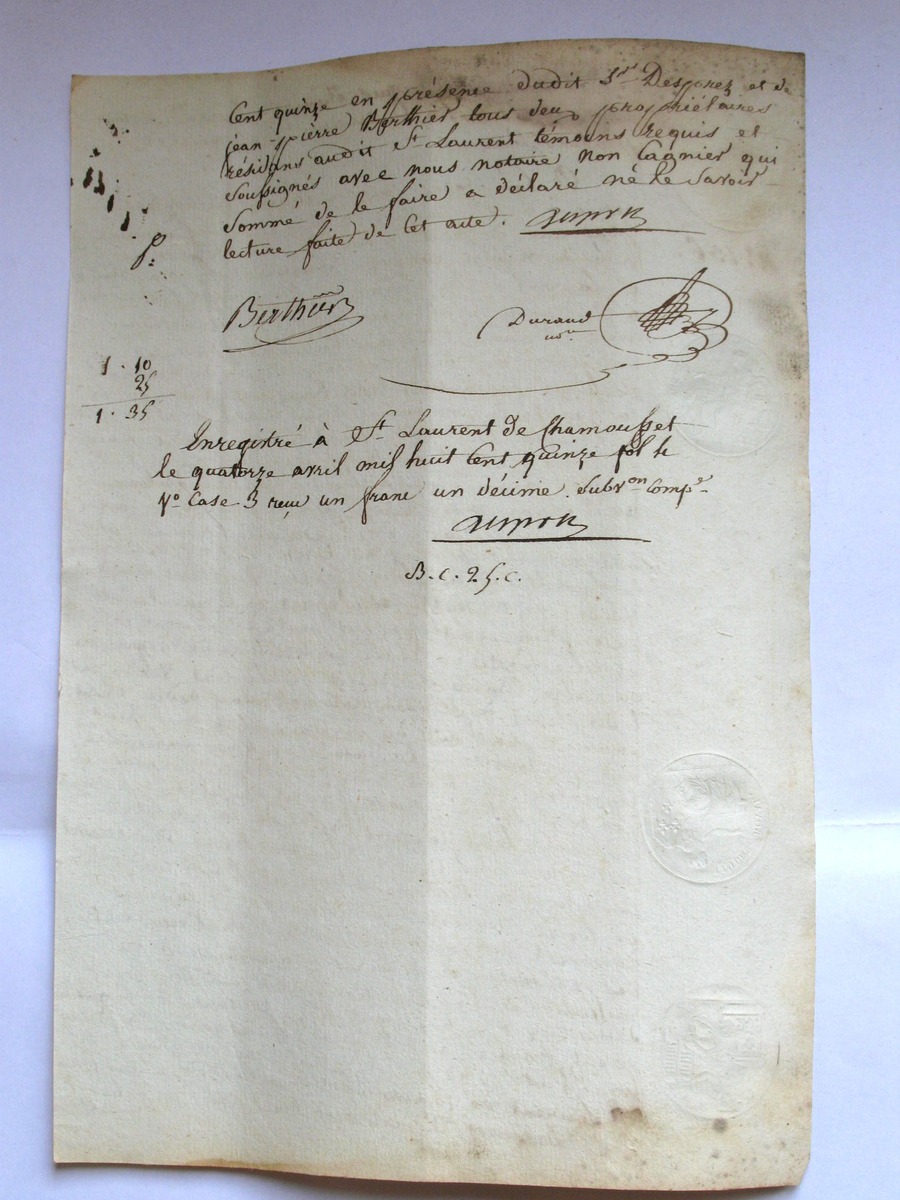 Cent quinze en présence dudit Sr. Desprez et de
jean-pierre Berthier tous deux propriétaires
résidans audit St. Laurent témoins requis et
soussignés avec nous notaire non Cagnier qui
Sommé de le faire a déclaré né le Savoir
lecture faite de cet acte.
Berthier
Durand
nore.
1 . 10
25
1 . 35
Enregistré à St. Laurent de Chamousset
le quatorze avril mil huit Cent quinze fol 4
Vo. Case 3 reçu un franc un décime. Subvon. Compe.
B. c. 25. c.